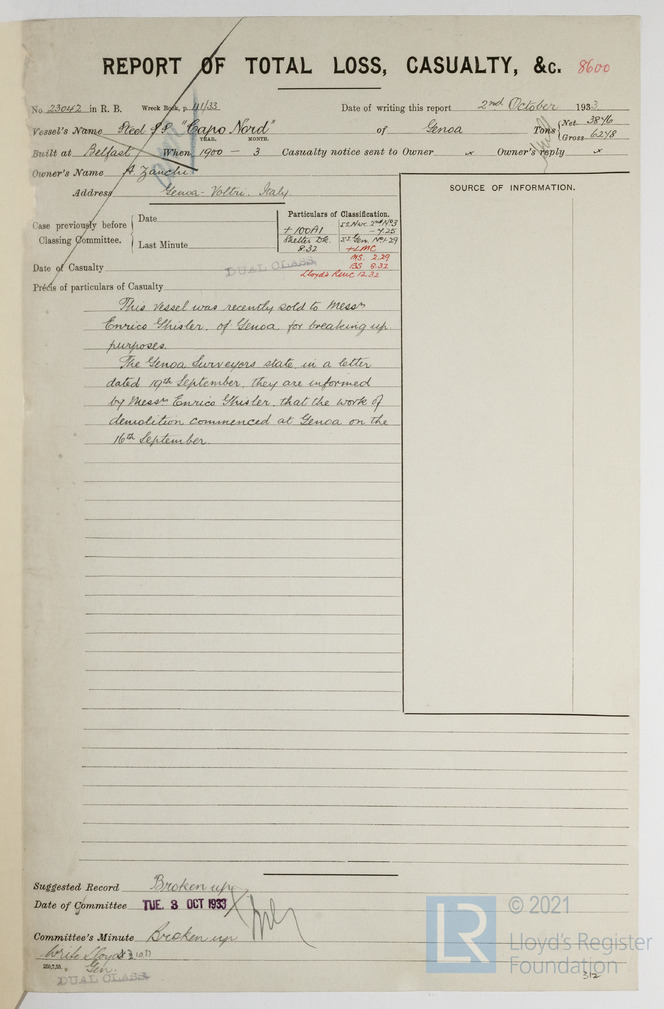 REPORT OF TOTAL LOSS, CASUALTY, &c. 8600
No 23042 in R. B. Wreck Book, p. 111/33 Date of writing this report 2nd October 1933
Vessel's Name Steel SS "Capo Nord" of Genoa Tons Net 3876 Gross 6278
YEAR. MONTH.
Built at Belfast When 1900 - 3 Casualty notice sent to Owner x Owner's reply x
Owner's Name A Zanchi
Address Genoa-Voltri. Italy
SOURCE OF INFORMATION.
Case previously before Classing Committee. Date
Last Minute
Particulars of Classification.
+ 100A1
Shelter Dk.
8.32
SS Nav. 2nd No3
- 4.25
SS Gen. No1-29
+LMC
MS. 2.29
BS 8.32
Lloyd's RMC 12.32
Date of Casualty
DUAL CLASS
Précis of particulars of Casualty
This vessel was recently sold to Messrs
Enrico Ghisler, of Genoa, for breaking up
purposes.
The Genoa Surveyors state, in a letter
dated 19th September, they are informed
by Messrs Enrico Ghisler, that the work of
demolition commenced at Genoa on the
16th September.
Suggested Record Broken up
Date of Committee TUE. 3 OCT 1933
Committee's Minute Broken up
Write Lloyds
Gen.
DUAL CLASS
312
LR © 2021
Lloyd's Register
Foundation